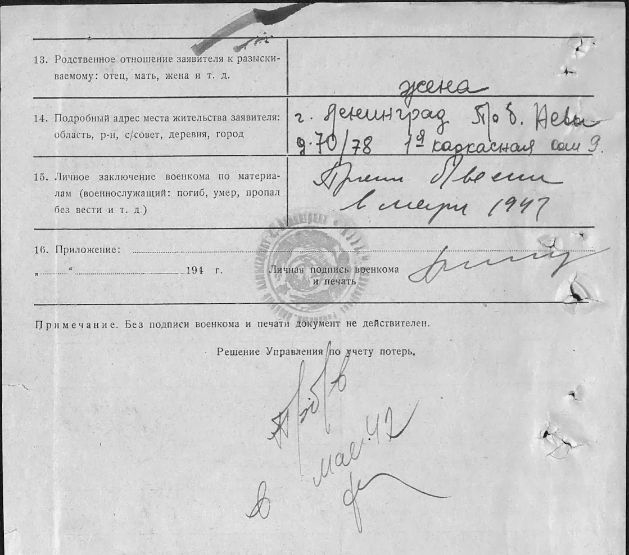 13. Родственное отношение заявителя к разыски-
ваемому: отец, мать, жена и т. д.
жена
14. Подробный адрес места жительства заявителя:
область, р-н, с/совет, деревня, город
г. Ленинград Наб. Невы
д. 70/78 1я каркасная дом 9.
15. Личное заключение военкома по материа-
лам (военнослужащий: погиб, умер, пропал
без вести и т. д.)
в 1947
16. Приложение:
„ “ 194 г.
Личная подпись военкома
и печать
Примечание. Без подписи военкома и печати документ не действителен.
Решение Управления по учету потерь.
в мае 42